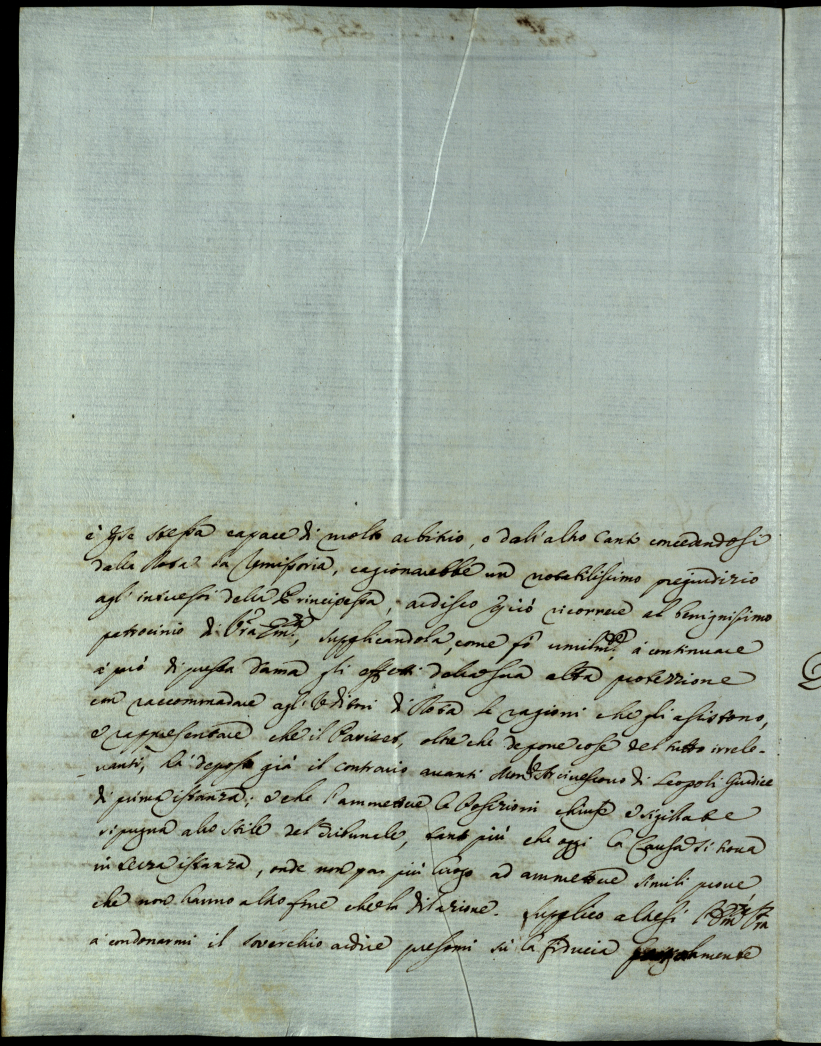 è per stessa capace di molto arbitrio, e dall'altro canto concedendosi
dalla Rota la remissoria, cagionarebbe un notabilissimo pregiudizio
agl'interessi della Principessa, ardisco perciò ricorrere al benignissimo
patrocinio di Vra Emza, supplicandola, come fò umilmte, à continuare
à prò di questa Dama gli effetti della sua alta protezzione
con raccommandare agl'Uditori di Rota le ragioni che gli assistono,
e rappresentare che il Parizet, oltre che depone cose del tutto irrele-
vanti, hà deposto già il contrario avanti Monsr Arcivescovo di Leopoli Giudice
di prima istanza; e che l'ammettere le Posizioni chiuse e sigillate
ripugna allo stile del Tribunale, tanto più che oggi la Causa si trova
in terza istanza, onde non par più luogo ad ammettere simili prove
che non hanno altro fine che la dilazione. Supplico altresì l'Emza Vra
à condonarmi il soverchio ardire presomi sù la fiducia